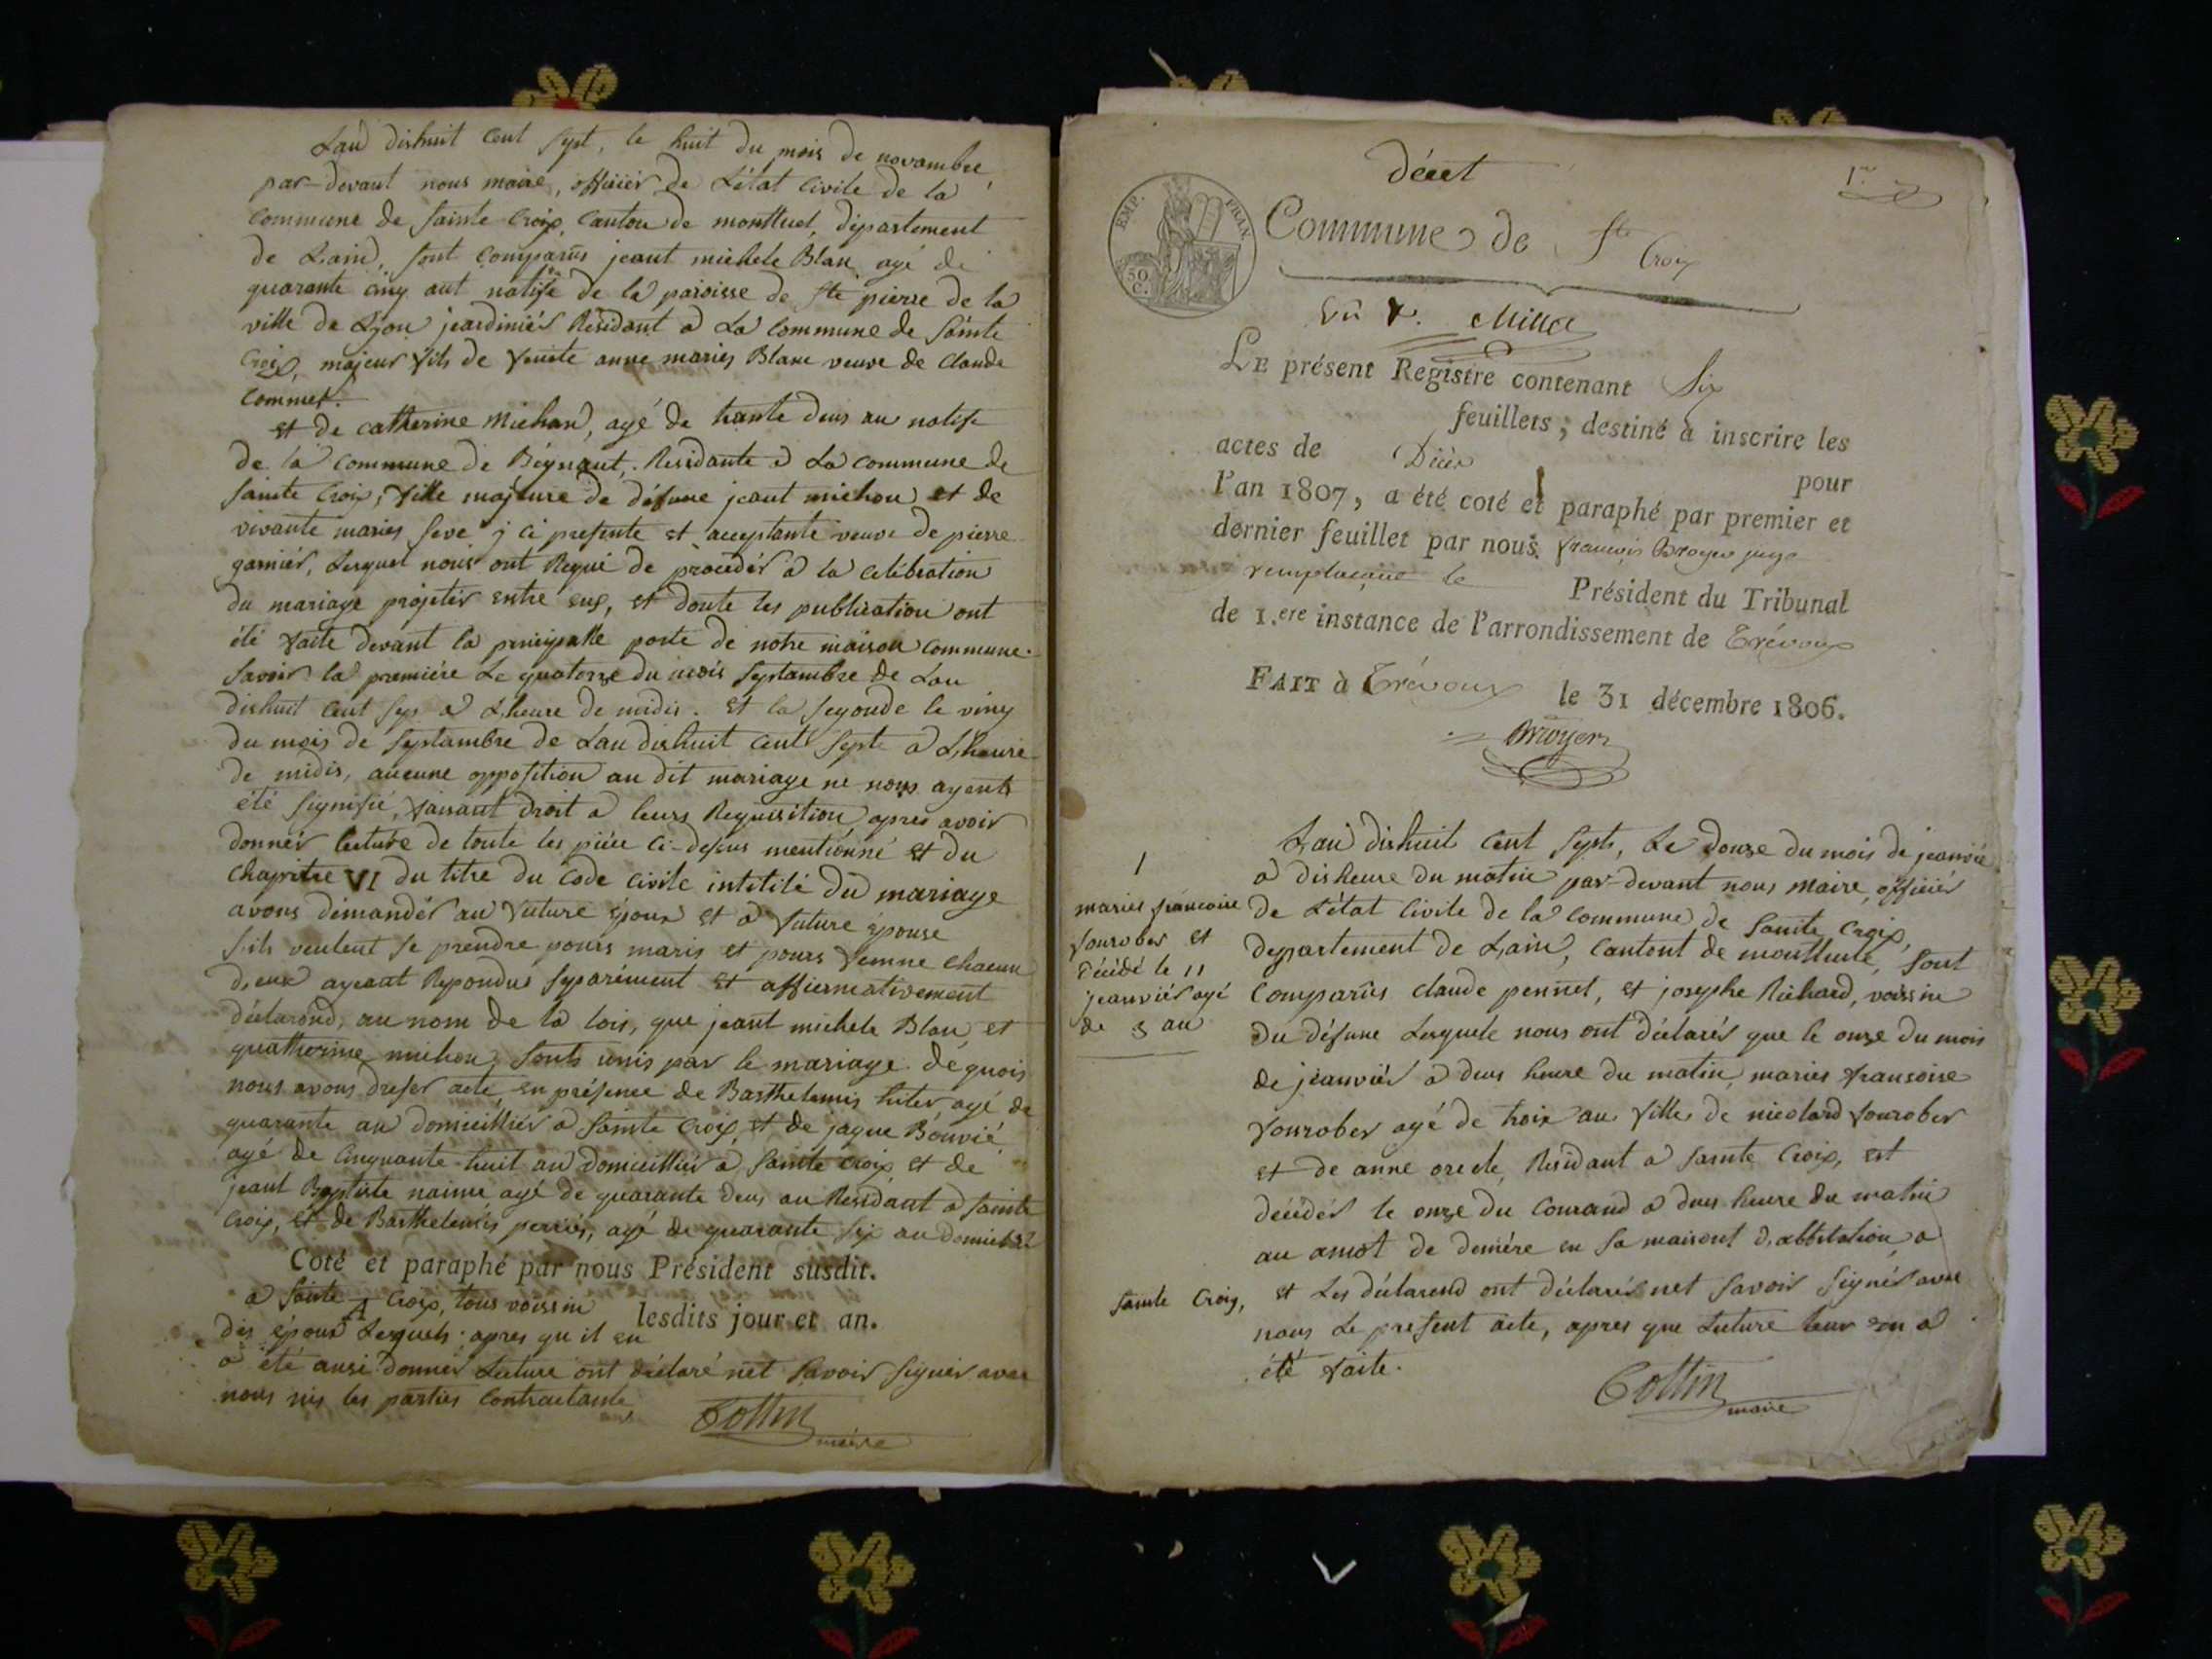 Lan dishuit cent sept, le huit du mois de novambre,
par-devant nous maire, officier de L'état Civile de la
Commune de Sainte Croix, Canton de montluel, département
de Lain, sont Comparûs jeant michele Blan agé de
quarante cinq ant natife de la paroisse de ste pierre de la
ville de Lyon jeardiniér Résidant a La Commune de Sainte
Croix, majeur fils de anne maries Blanc veuve de Claude
Commet.
et de catherine Michon, agé de trante deus an natife
de la Commune de Béynaut, Residante a La Commune de
Sainte Croix, fille majeure de défunt jeant michon et de
vivante maries seve j ci presente et acceptante veuve de pierre
garniér, Lesquel nous ont Requi de procédér a la celébration
du mariage projetér entre eux, et donte les publication ont
été faite devant la principalle porte de notre maison commune.
Savoir la premiére Le quatorze du mois Septambre de Lan
dishuit Cent Sep a Lheure de midis. et la segonde le ving
du mois de Septambre de Lan dishuit Cent Sept a L'heure
de midis, aucune opposition au dit mariage ne nous ayents
été signifié, faisant droit a leurs Requisition apres avoir
donnér lecture de toute les piéce Ci-desus mentionné et du
Chapitre VI du titre du Code Civile intitilé du mariage
avons démandér au future époux et a future épouse
s'ils veulent se prendre pours maris et pours femne chacun
d'eux ayeant Repondus séparément et affiermativement
déclarond, au nom de la lois, que jeant michele Blan et
quatherine michon, sonts unis par le mariage. dequois
nous avons dreser acte, en présence de Barthelemis hiter, agé de
quarante an domicilliér a Sainte Croix et de jaque Bouvié
agé de Cinquante huit an domicilliér a Sainte Croix et de
jeant Baptiste naime agé de quarante deus an Residant a Sainte
Croix, et de Barthelemis perriér, agé de quarante six an
Coté et paraphé par nous Président susdit.
a Sainte Croix, tous voissin
lesdits jour et an.
des époux Lesquels apres qu'il en
a été ausi donnér Lecture ont déclaré net savoir signér avec
nous nis les parties Contractante
Cottin
maire
décet
1er
EMP. FRAN.
50 C.
Commune de Ste Croix
Vû Millet
LE présent Registre contenant Six
feuillets, destiné à inscrire les
actes de Décès pour
l'an 1807, a été coté et paraphé par premier et
dernier feuillet par nous françois Broyer juge
remplaçant le Président du Tribunal
de 1.ere instance de l'arrondissement de Trévoux
FAIT à Trévoux le 31 décembre 1806.
Broyer
1
maries francoise
fourober et
décédé le 11
jeanviér agé
de 3 an
Lan dishuit Cent Septs, Le douze du mois de jeanviér
a disheure du matin par-devant nous Maire, officiér
de L'état Civile de la Commune de Sainte Croix,
departement de Lain, Cantont de montluele, sont
Comparûs claude pennet, et josephe Richard, voissin
du défunc Lesquele nous ont déclarés que le onze du mois
de jéanviér a deus heure du matin, maries fransoise
fourober agé de trois an fille de nicolard fourober
et de anne orecle, Residant a Sainte Croix, est
décédér le onze du Courand a deus heure du matin
au amot de deniére en sa maisont d'abbitation a
Sainte Croix, et Les déclarend ont déclarés net savoir signér avec
nous Le present acte, apres que Lecture leur en a
été faite.
Cottin
maire